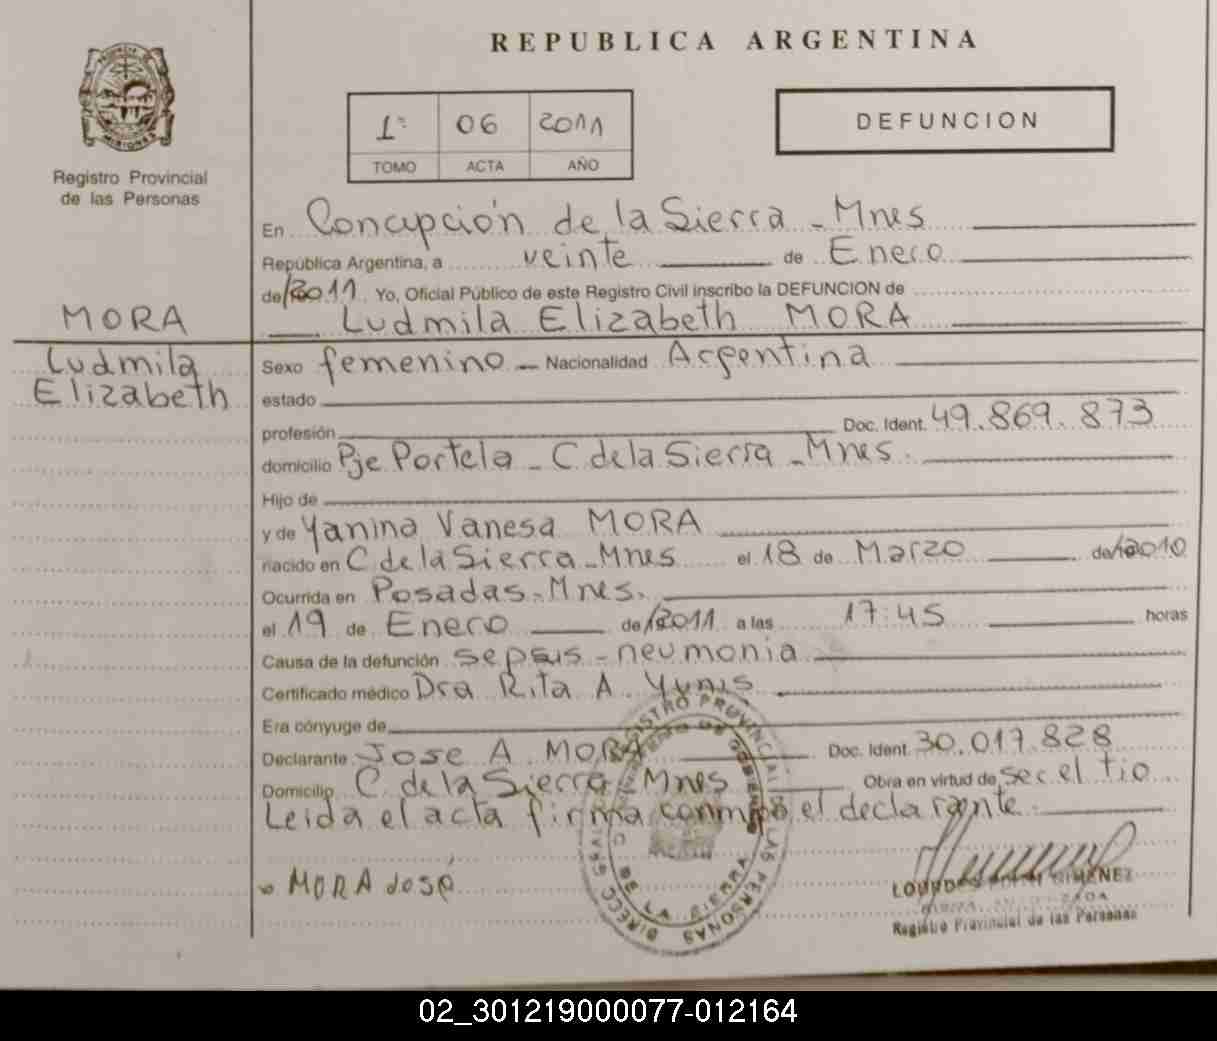 REPUBLICA ARGENTINA
PROVINCIA DE MISIONES
Registro Provincial
de las Personas
1º 06 2011
TOMO ACTA AÑO
DEFUNCION
En Concepción de la Sierra - Mnes
República Argentina, a veinte de Enero
de 2011 Yo, Oficial Público de este Registro Civil inscribo la DEFUNCION de
Ludmila Elizabeth MORA
MORA
Ludmila
Elizabeth
Sexo femenino - Nacionalidad Argentina
estado
profesión Doc. Ident. 49.869.873
domicilio Pje Portela - C de la Sierra - Mnes.
Hijo de
y de Yanina Vanesa MORA
nacido en C de la Sierra - Mnes el 18 de Marzo de 2010
Ocurrida en Posadas - Mnes.
el 19 de Enero de 2011 a las 17:45 horas
Causa de la defunción sepsis - neumonia
Certificado médico Dra Rita A. Yunis
Era cónyuge de
Declarante Jose A MORA Doc. Ident. 30.017.828
Domicilio C de la Sierra - Mnes Obra en virtud de ser el tio
Leida el acta firma conmigo el declarante.
MORA José
DIRECC GRAL REGISTRO PROVINCIAL DE LAS PERSONAS
MINISTERIO DE GOBIERNO
C DE LA SIERRA
LOURDES GIMENEZ
Registro Provincial de las Personas
02_301219000077-012164